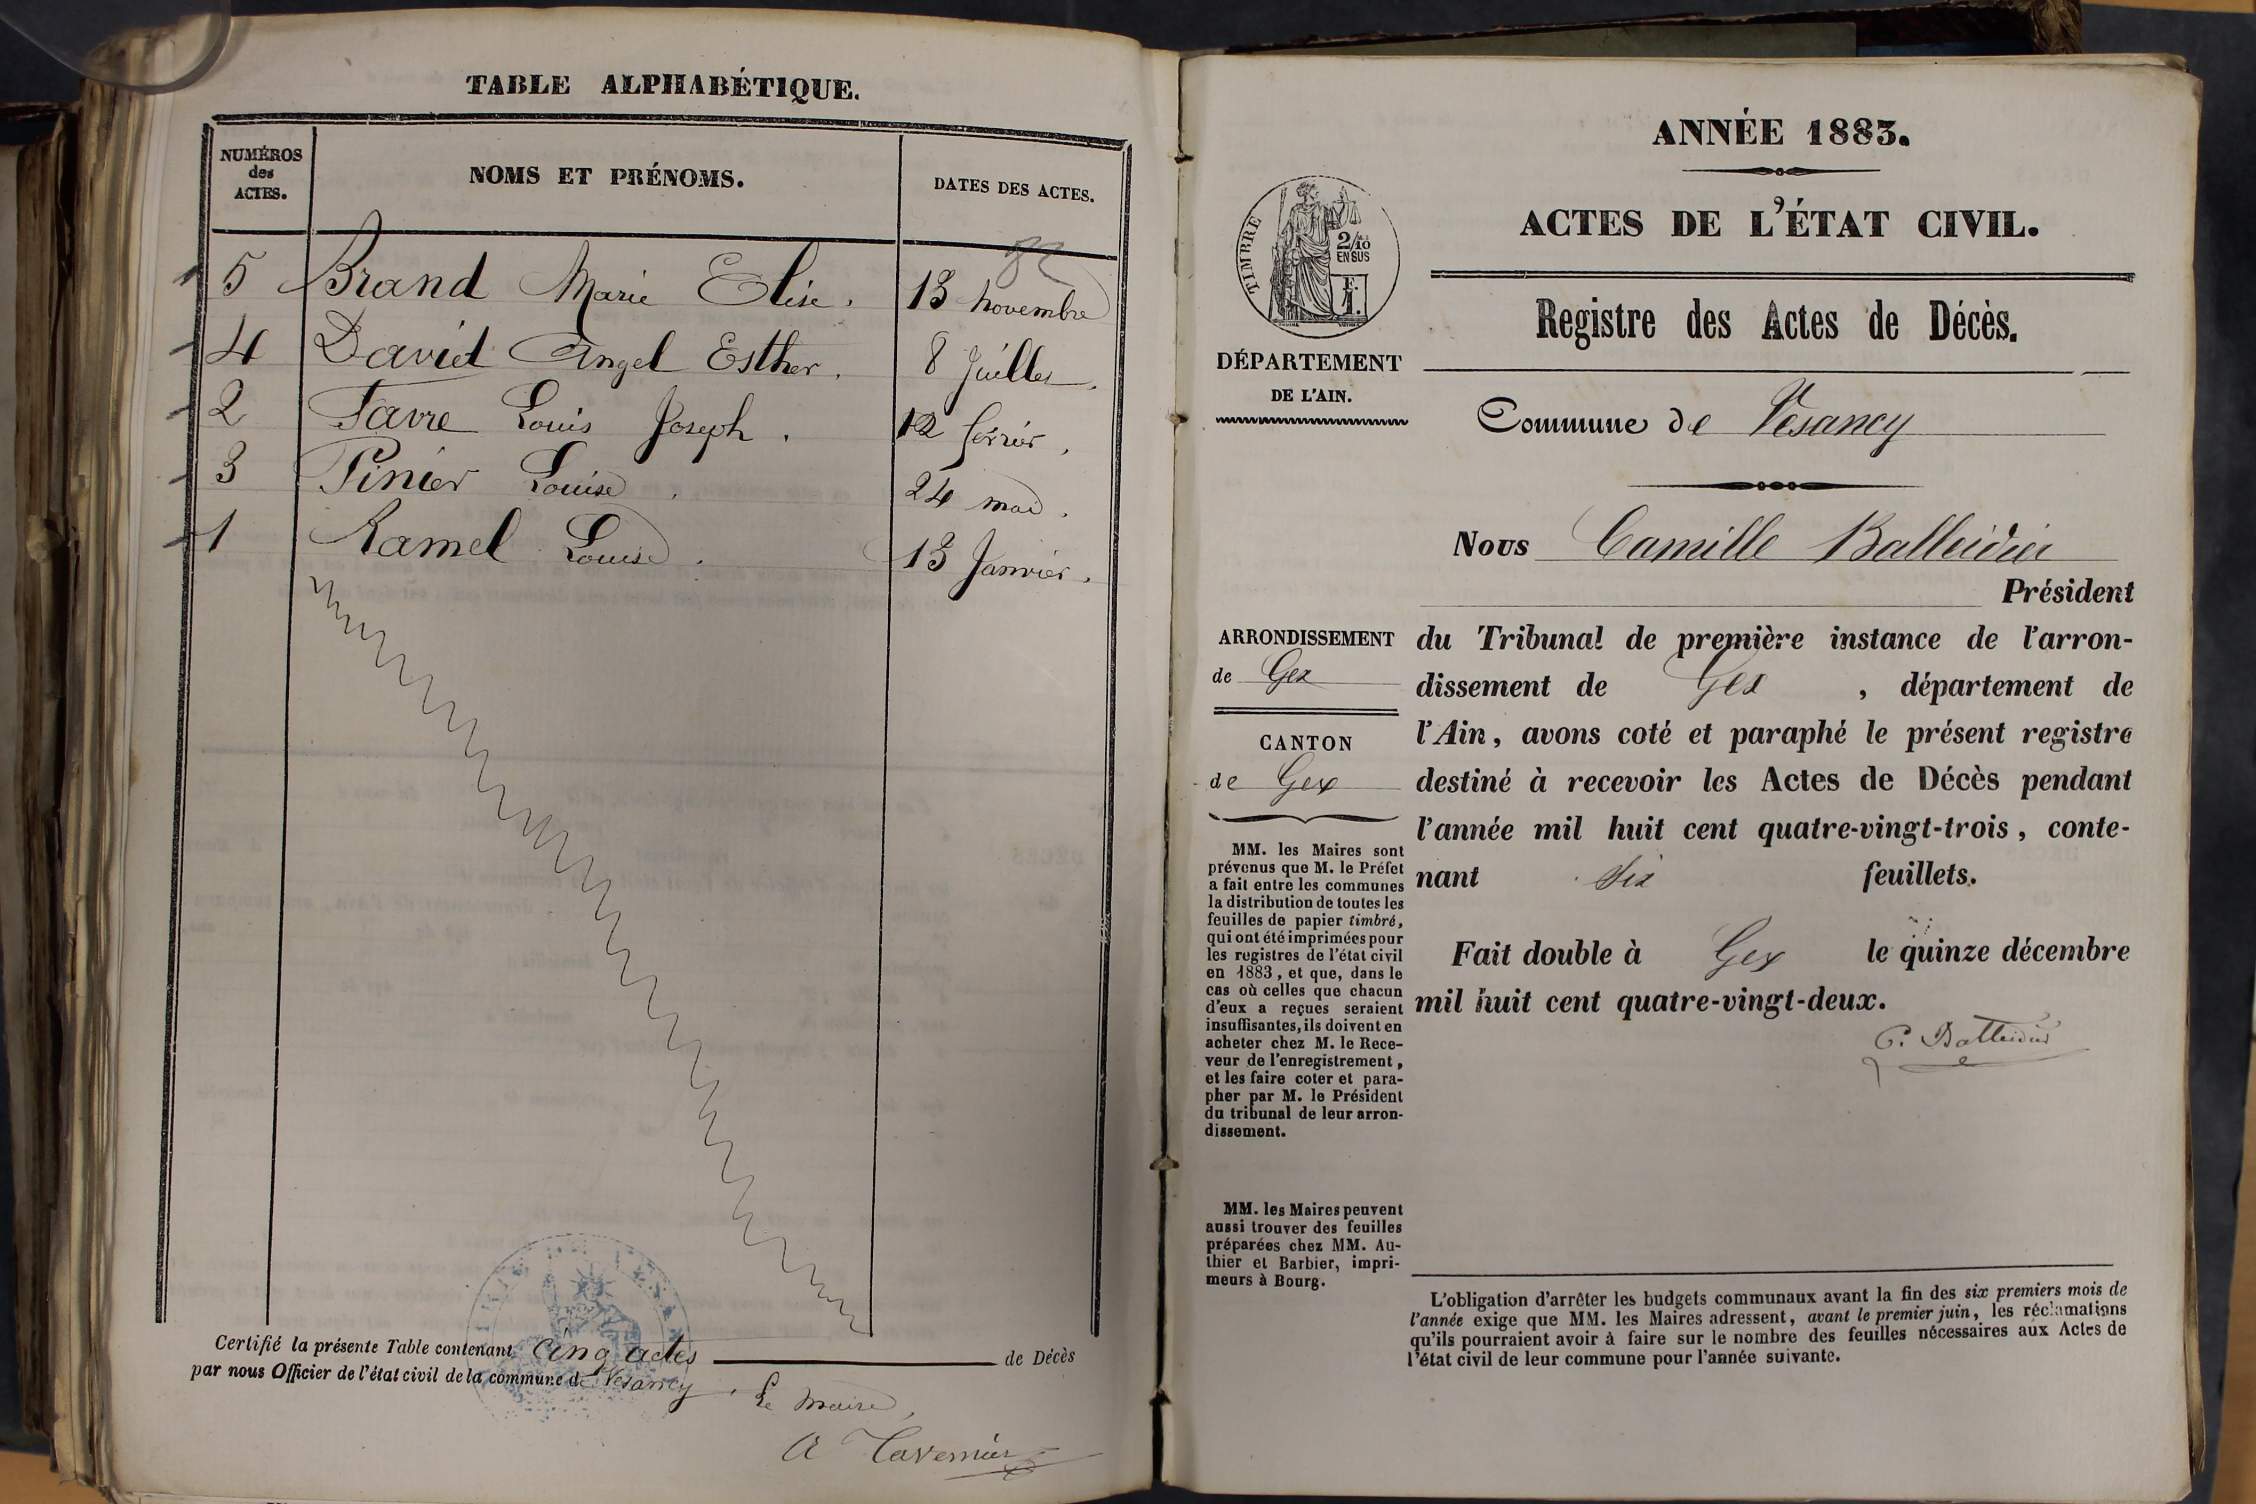 TABLE ALPHABÉTIQUE.
NUMÉROS des ACTES. NOMS ET PRÉNOMS. DATES DES ACTES.
82
5 Brand Marie Elise. 13 novembre
4 Daviet Angel Esther. 8 Juillet.
2 Favre Louis Joseph. 12 février.
3 Pinier Louise. 24 mai.
1 Ramel Louise. 13 Janvier.
Certifié la présente Table contenant cinq actes de Décès
par nous Officier de l'état civil de la commune de Vesancy. Le Maire,
A Tavernier
ANNÉE 1883.
ACTES DE L'ÉTAT CIVIL.
TIMBRE
2/10
EN SUS
F.
1.
DÉPARTEMENT
DE L'AIN.
Registre des Actes de Décès.
Commune de Vesancy
Nous Camille Balleidier
Président
du Tribunal de première instance de l'arron-
dissement de Gex, département de
l'Ain, avons coté et paraphé le présent registre
destiné à recevoir les Actes de Décès pendant
l'année mil huit cent quatre-vingt-trois, conte-
nant six feuillets.
Fait double à Gex le quinze décembre
mil huit cent quatre-vingt-deux.
C. Balleidier
ARRONDISSEMENT
de Gex
CANTON
de Gex
MM. les Maires sont
prévenus que M. le Préfet
a fait entre les communes
la distribution de toutes les
feuilles de papier timbré,
qui ont été imprimées pour
les registres de l'état civil
en 1883, et que, dans le
cas où celles que chacun
d'eux a reçues seraient
insuffisantes, ils doivent en
acheter chez M. le Rece-
veur de l'enregistrement,
et les faire coter et para-
pher par M. le Président
du tribunal de leur arron-
dissement.
MM. les Maires peuvent
aussi trouver des feuilles
préparées chez MM. Au-
thier et Barbier, impri-
meurs à Bourg.
L'obligation d'arrêter les budgets communaux avant la fin des six premiers mois de
l'année exige que MM. les Maires adressent, avant le premier juin, les réclamations
qu'ils pourraient avoir à faire sur le nombre des feuilles nécessaires aux Actes de
l'état civil de leur commune pour l'année suivante.